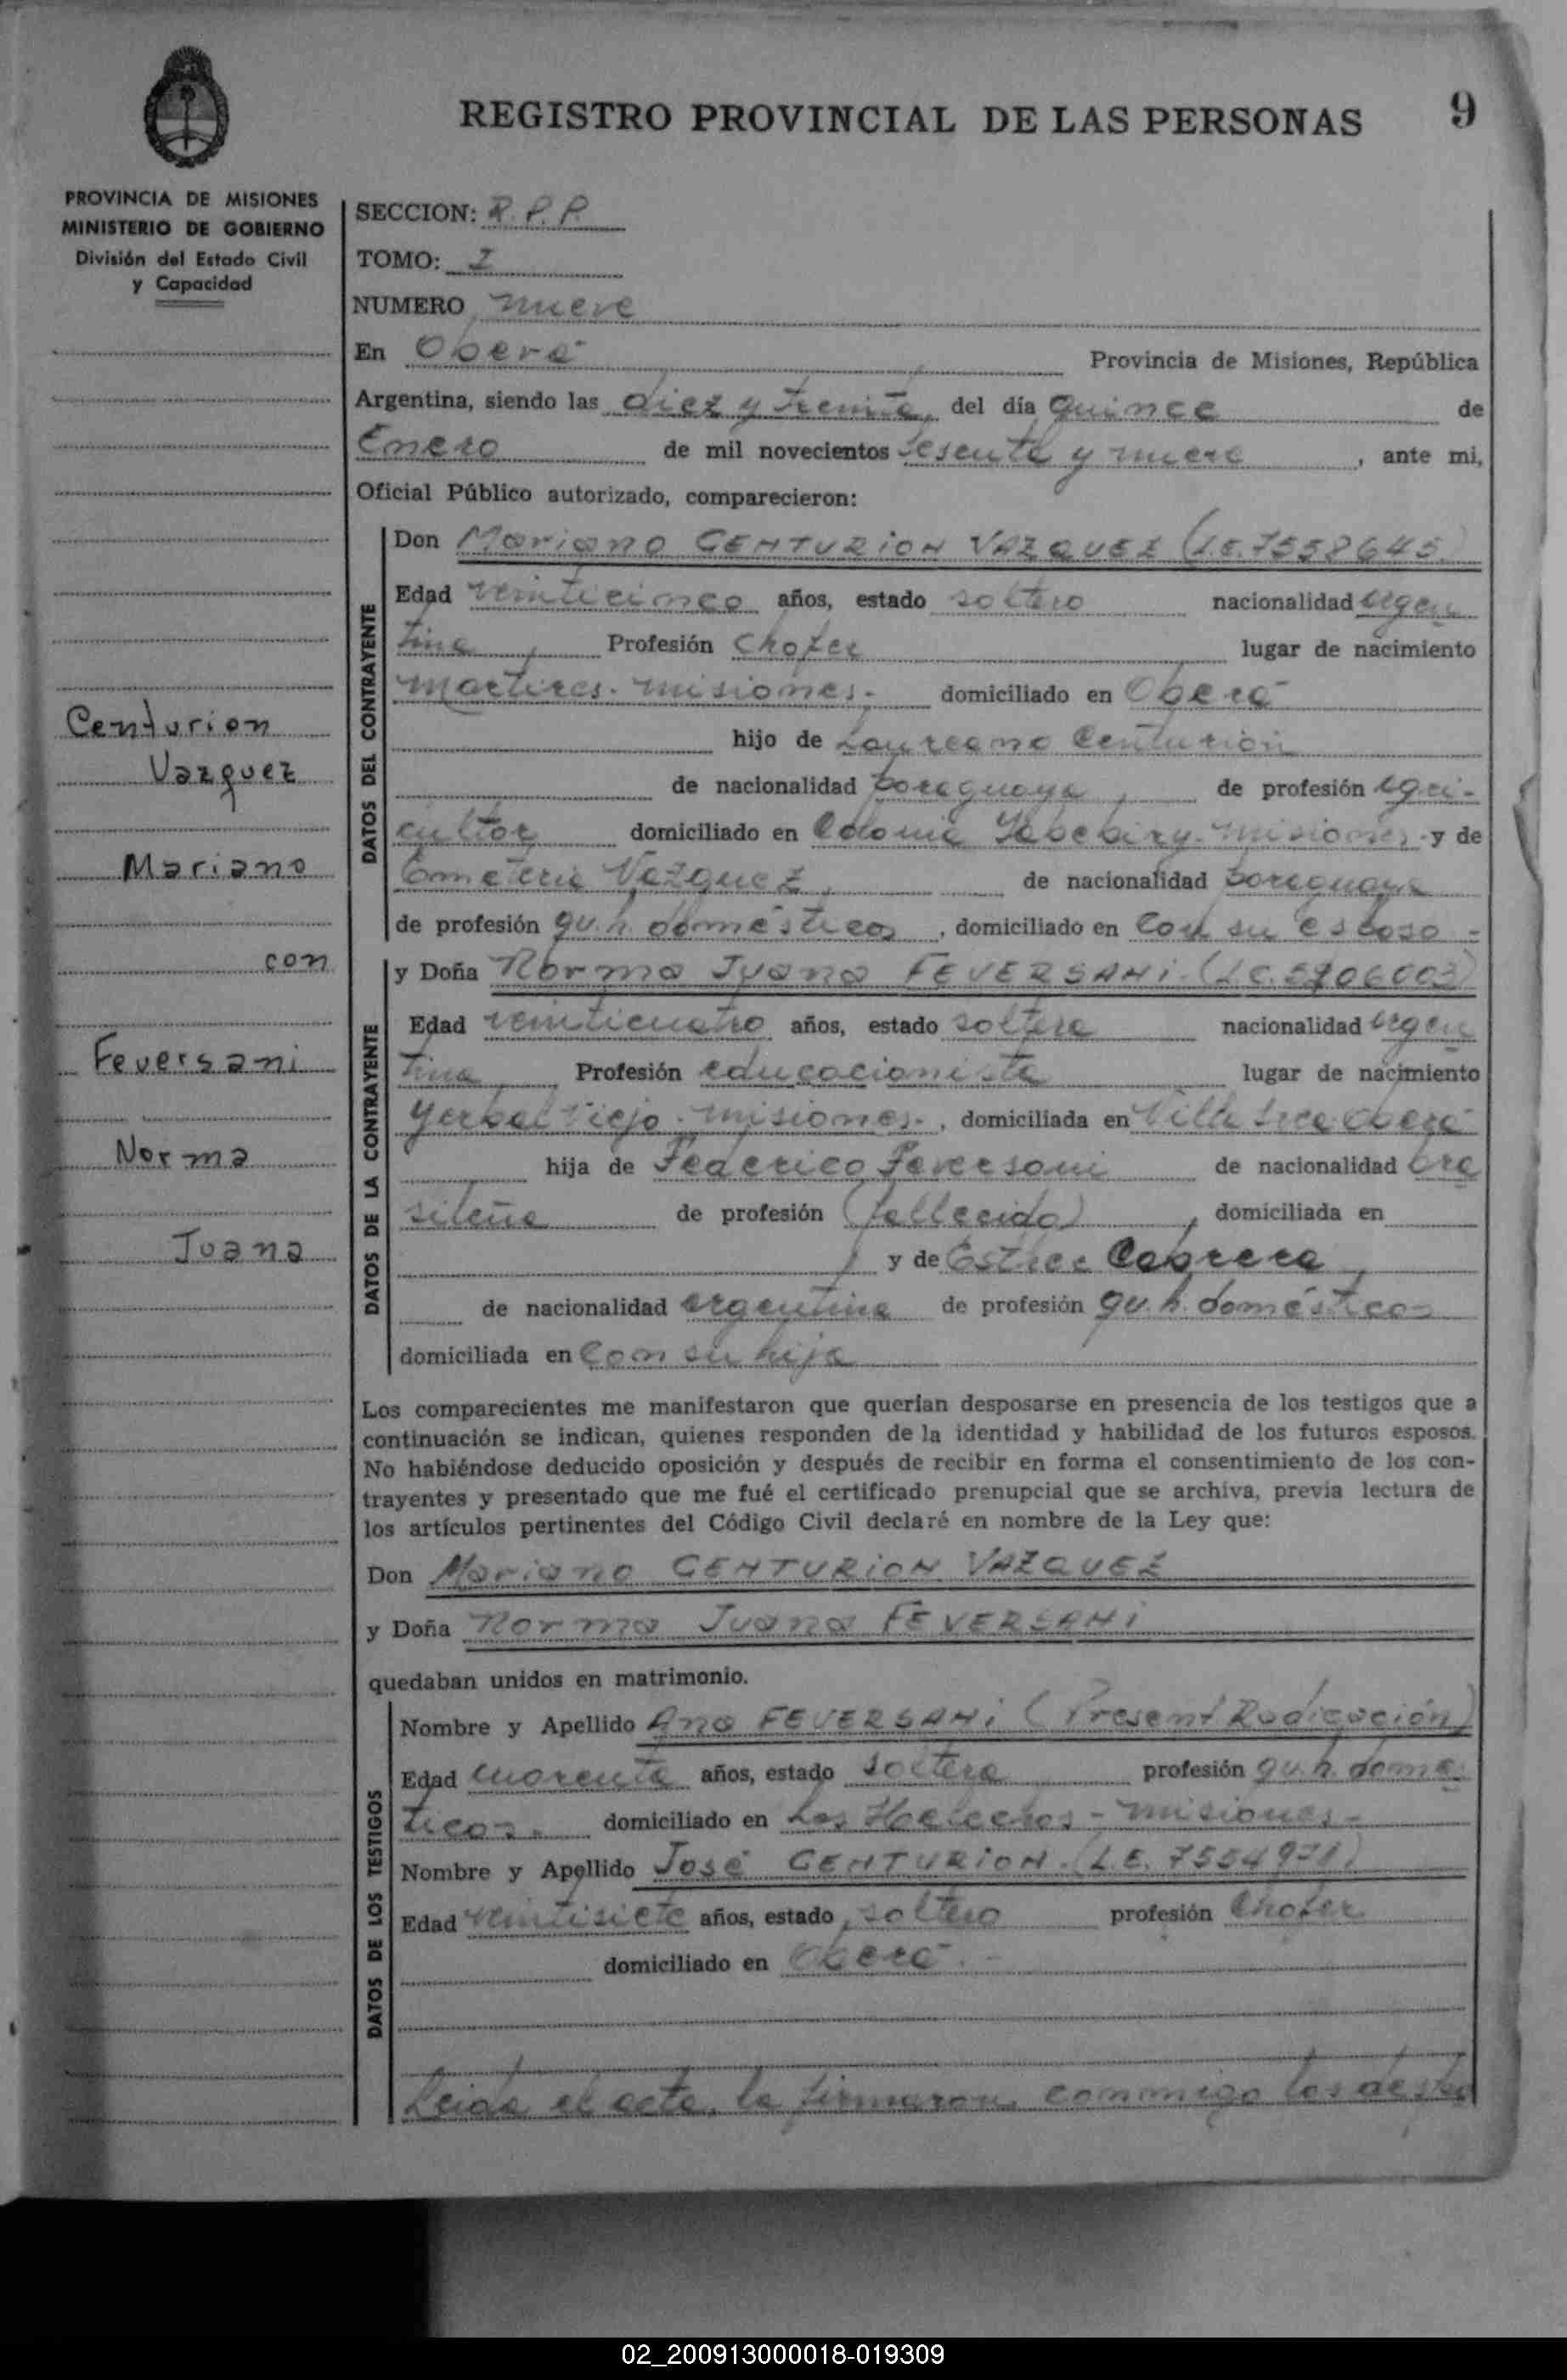 REGISTRO PROVINCIAL DE LAS PERSONAS 9
PROVINCIA DE MISIONES
MINISTERIO DE GOBIERNO
División del Estado Civil
y Capacidad
SECCION: R. P. P.
TOMO: I
NUMERO nueve
En Oberá Provincia de Misiones, República
Argentina, siendo las diez y treinta, del día quince de
Enero de mil novecientos sesenta y nueve, ante mi,
Oficial Público autorizado, comparecieron:
Centurion
Vazquez
Mariano
con
Feversani
Norma
Juana
DATOS DEL CONTRAYENTE
Don Mariano CENTURION VAZQUEZ (L.E. 7558645)
Edad veinticinco años, estado soltero nacionalidad argen
tina, Profesión Chofer lugar de nacimiento
Martires. Misiones. domiciliado en Oberá
hijo de Laureano Centurión
de nacionalidad paraguaya, de profesión agri-
cultor domiciliado en Colonia Yabebiry. Misiones y de
Emeteria Vazquez, de nacionalidad paraguaya
de profesión qu. h. domésticos, domiciliado en con su esposo -
DATOS DE LA CONTRAYENTE
y Doña Norma Juana FEVERSANI (L.C. 5706003)
Edad veinticuatro años, estado soltera nacionalidad argen
tina, Profesión educacionista lugar de nacimiento
Yerbal Viejo. Misiones., domiciliada en Villa Oberá
hija de Federico Feversani de nacionalidad bra
sileña de profesión (fallecido), domiciliada en
y de Esther Cabrera,
de nacionalidad argentina de profesión qu. h. domésticos
domiciliada en con su hija
Los comparecientes me manifestaron que querían desposarse en presencia de los testigos que a
continuación se indican, quienes responden de la identidad y habilidad de los futuros esposos.
No habiéndose deducido oposición y después de recibir en forma el consentimiento de los con-
trayentes y presentado que me fué el certificado prenupcial que se archiva, previa lectura de
los artículos pertinentes del Código Civil declaré en nombre de la Ley que:
Don Mariano CENTURION VAZQUEZ
y Doña Norma Juana FEVERSANI
quedaban unidos en matrimonio.
DATOS DE LOS TESTIGOS
Nombre y Apellido Ana FEVERSANI (Present Radicación)
Edad cuarenta años, estado soltera profesión qu. h. domés
ticos. domiciliado en Los Helechos - Misiones -
Nombre y Apellido José CENTURION. (L.E. 7554971)
Edad veintisiete años, estado, soltero profesión Chofer
domiciliado en Oberá. -
Leida el acta, la firmaron conmigo los
02_200913000018-019309